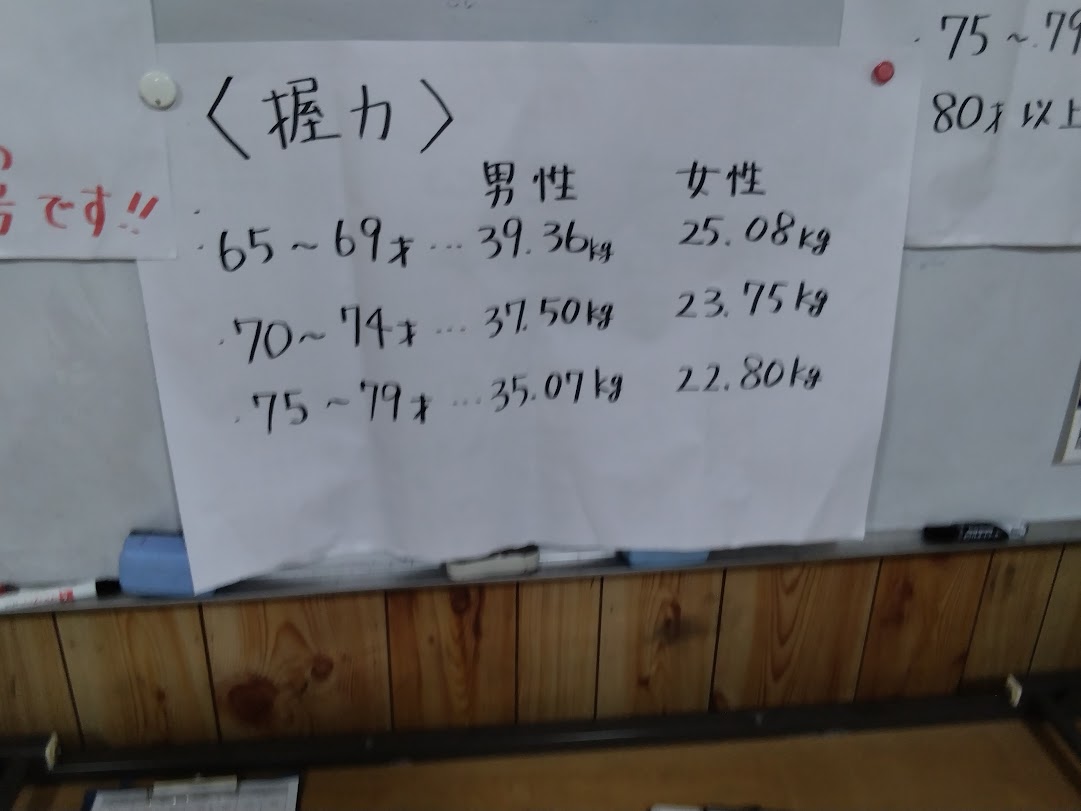 〈握力〉
男性 女性
・65～69才…39.36kg 25.08kg
・70～74才…37.50kg 23.75kg
・75～79才…35.07kg 22.80kg
です!!
・75～79
80才以上